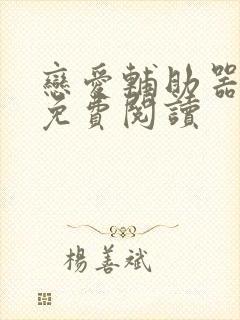 戀愛輔助器
免費閱讀
楊善斌